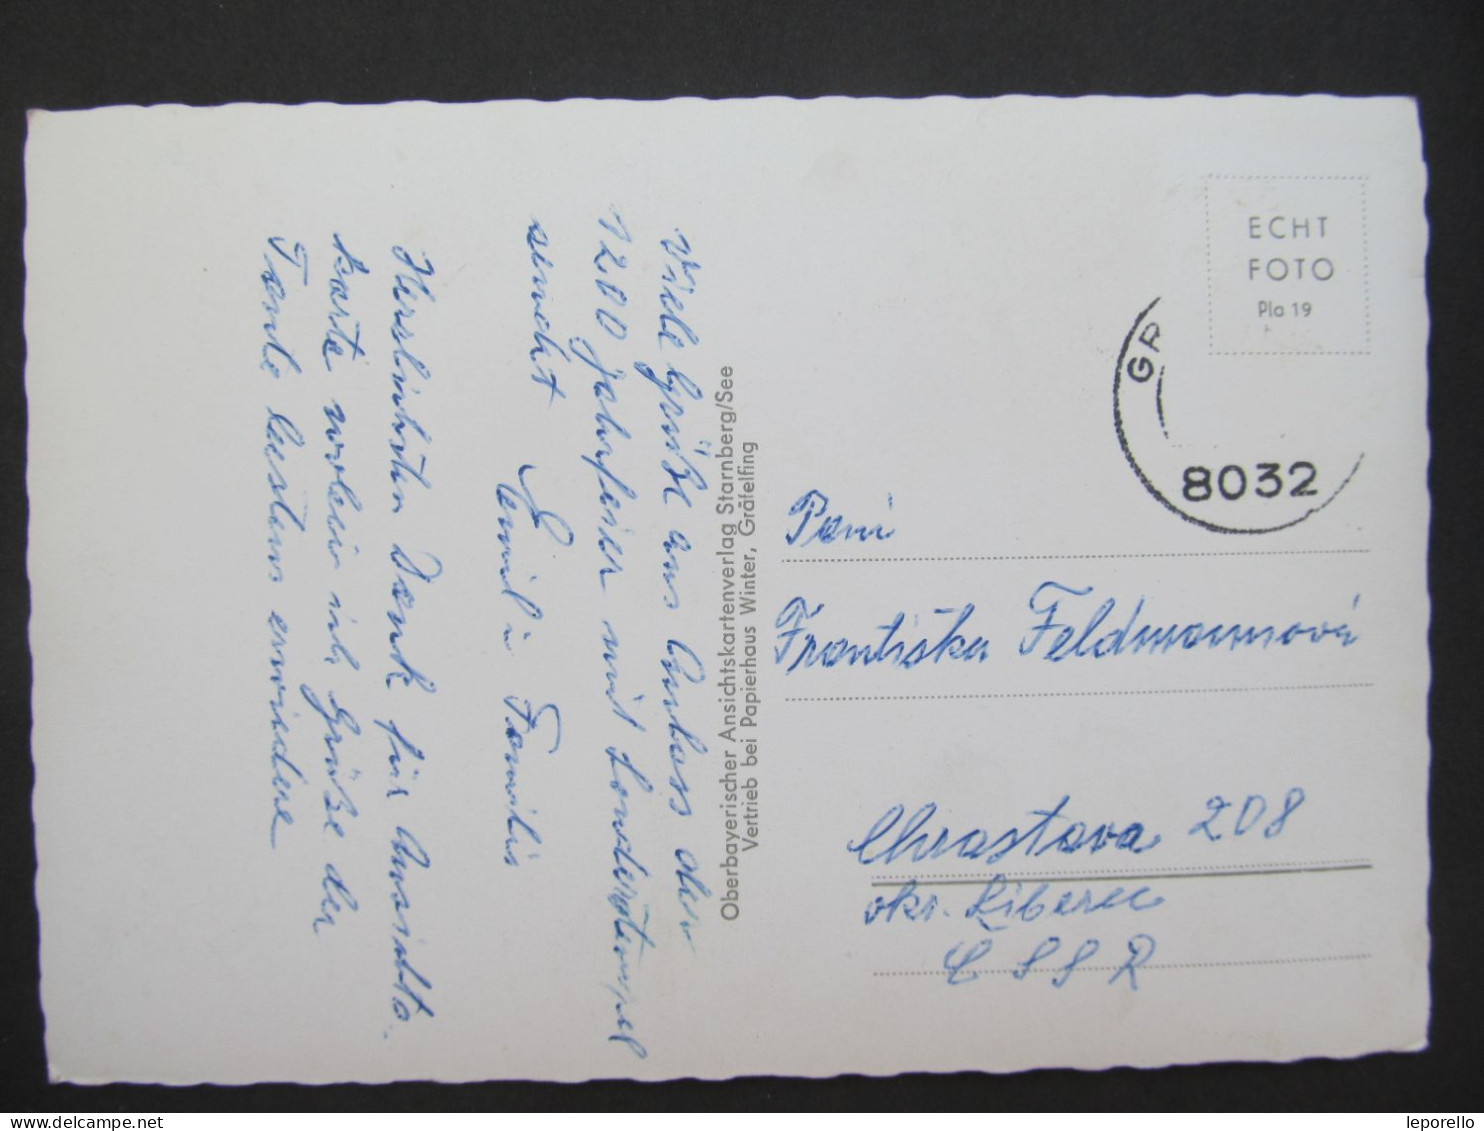 Viele Grüße aus Anlass der
1200 jahrfeier mit Sonderstempel
sendet Emil u. Familie
Herzlichsten Dank für Ansichts-
karte wobei ich Grüße der
Tante bestens erwidere
Oberbayerischer Ansichtskartenverlag Starnberg/See
Vertrieb bei Papierhaus Winter, Gräfelfing
ECHT
FOTO
Pla 19
GR
8032
Paní
Františka Feldmannová
Chrastava 208
okr. Liberec
ČSSR
leporello